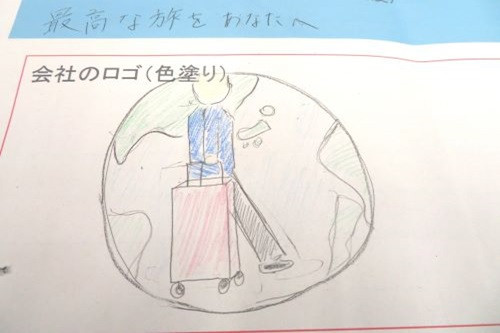 最高な旅をあなたへ
会社のロゴ(色塗り)